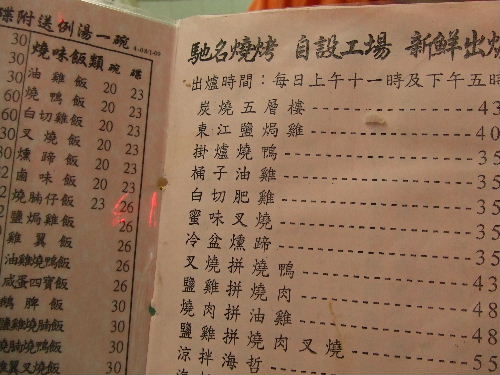 碟附送例湯一碗
燒味飯類 碗 碟
油雞飯 20 23
燒鴨飯 20 23
白切雞飯 20 23
叉燒飯 20 23
燻蹄飯 20 23
鹵味飯 20 23
燒腩仔飯 23 26
鹽焗雞飯 26
雞翼飯 26
油雞燒鴨飯 26
咸蛋四寶飯 26
鵝脾飯 30
鹽雞燒腩飯 30
燒腩燒鴨飯 30
鹽雞叉燒飯 30
馳名燒烤 自設工場 新鮮出爐
出爐時間：每日上午十一時及下午五時
炭燒五層樓 43
東江鹽焗雞 40
掛爐燒鴨 35
桶子油雞 35
白切肥雞 35
蜜味叉燒 35
冷盆燻蹄 35
叉燒拼燒鴨 43
鹽雞拼燒肉 48
燒肉拼油雞 48
鹽雞拼燒肉叉燒 55
涼拌海哲